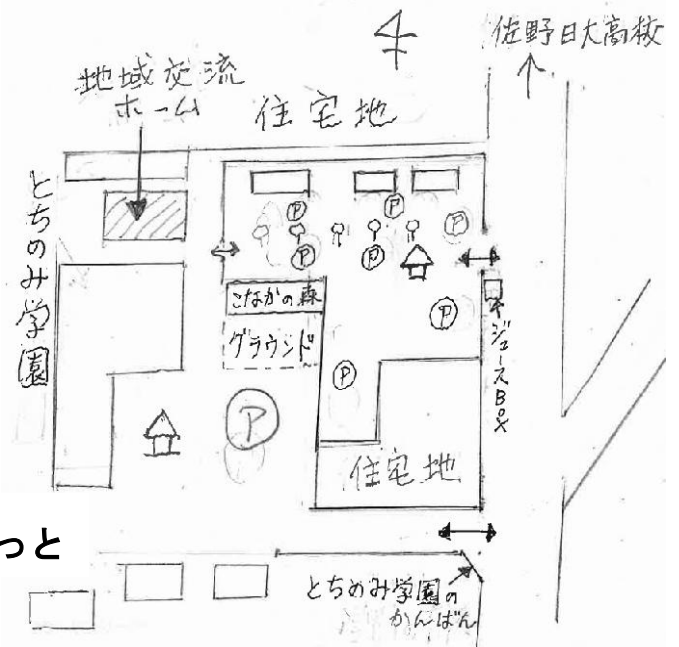 佐野日大高校
地域交流
ホーム
住宅地
とちのみ学園
Ⓟ
Ⓟ
Ⓟ
Ⓟ
Ⓟ
こなかの森
グラウンド
Ⓟ
Ⓟ
Ⓟ
ジュースBOX
住宅地
っと
とちのみ学園の
かんばん